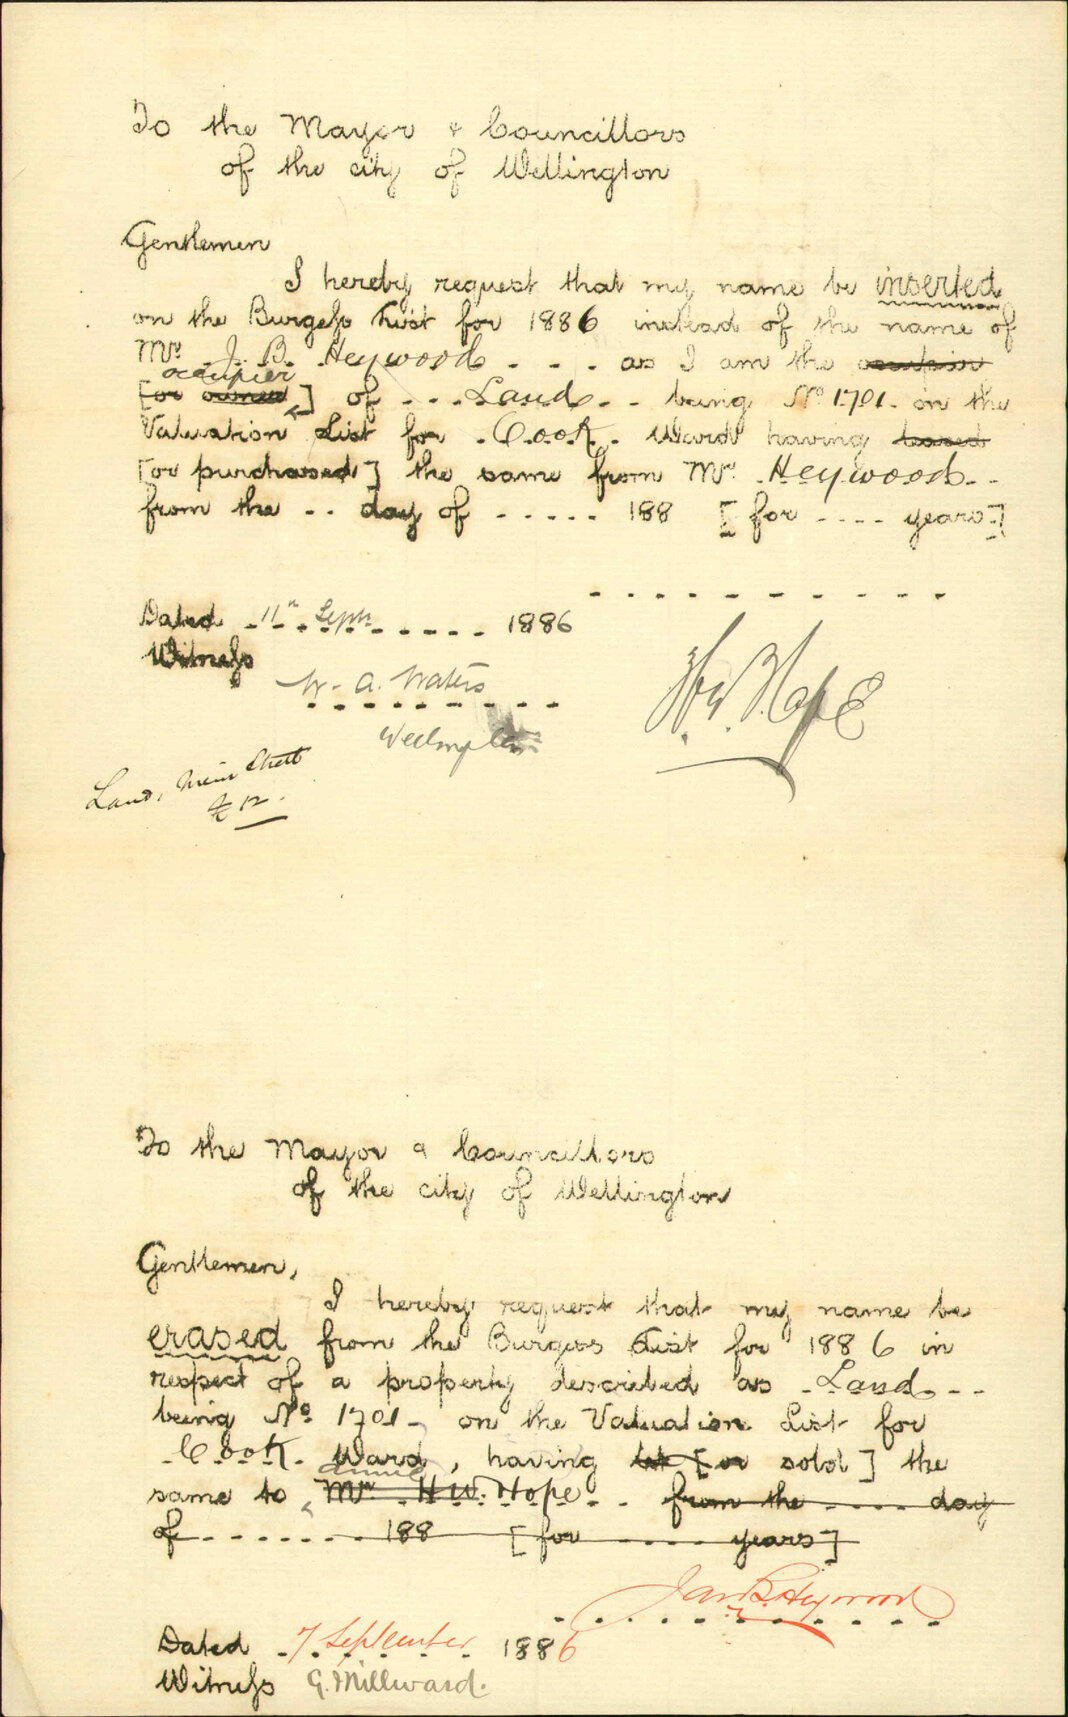 To the Mayor & Councillors
of the city of Wellington
Gentlemen
I hereby request that my name be inserted
on the Burgess List for 1886 instead of the name of
Mr. J. B. Heywood - - - as I am the occupier
occupier
[or owner] of - - - Land - - being No 1701 - on the
Valuation List for - Cook - Ward having leased
[or purchased] the same from Mr. Heywood - -
from the - - day of - - - - - 188 [for - - - - years]
Dated 11th Septr 1886
Witness
W. A. Waters
Wellington
Hy. W. Hope
Land, Main Street
£12.
To the Mayor & Councillors
of the city of Wellington
Gentlemen,
I hereby request that my name be
erased from the Burgess List for 1886 in
respect of a property described as - Land - -
being No. 1701 - on the Valuation List for
- Cook - Ward, having let [or sold] the
same to Mr. H. W. Hope - - from the - - - - day
of - - - - - - - 188 [for - - - - years]
Jas B. Heywood
Dated 7 September 1886
Witness G. Millward.